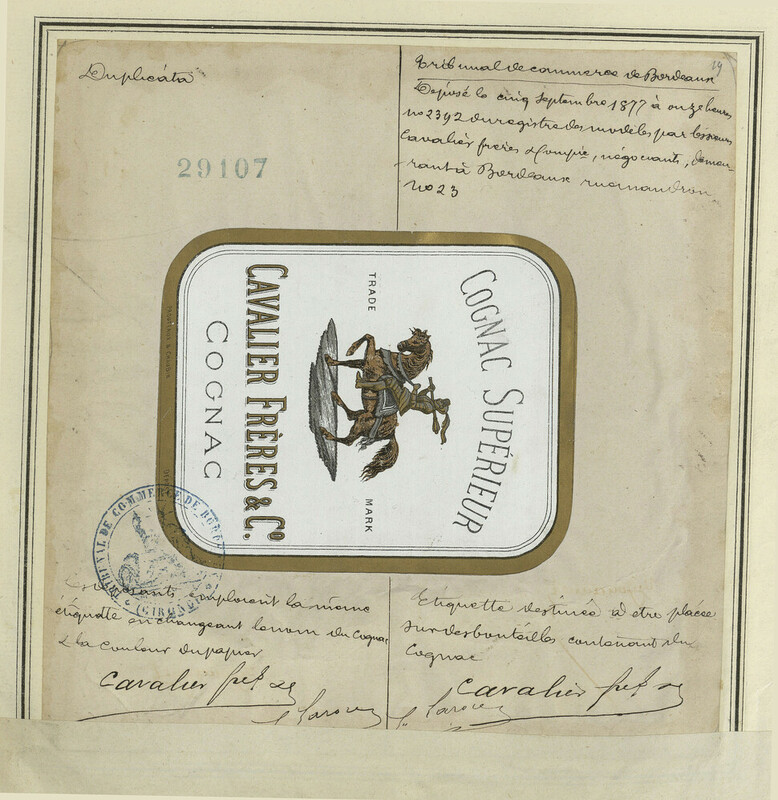 Duplicata
29107
19
Tribunal de commerce de Bordeaux
Déposé le cinq Septembre 1877 à onze heures
no 2392 du registre des modèles par les sieurs
Cavalier frères & Compie, négociants, demeu-
-rant à Bordeaux rue mandron
no 23
COGNAC SUPÉRIEUR
TRADE MARK
CAVALIER FRÈRES & Co
COGNAC
TRIBUNAL DE COMMERCE DE BORD
(GIRONDE)
Déposants emploient la même
étiquette en changeant le nom du Cognac
& la Couleur du papier
Cavalier
Etiquette destinée à etre placée
sur des bouteilles contenant du
Cognac
Cavalier